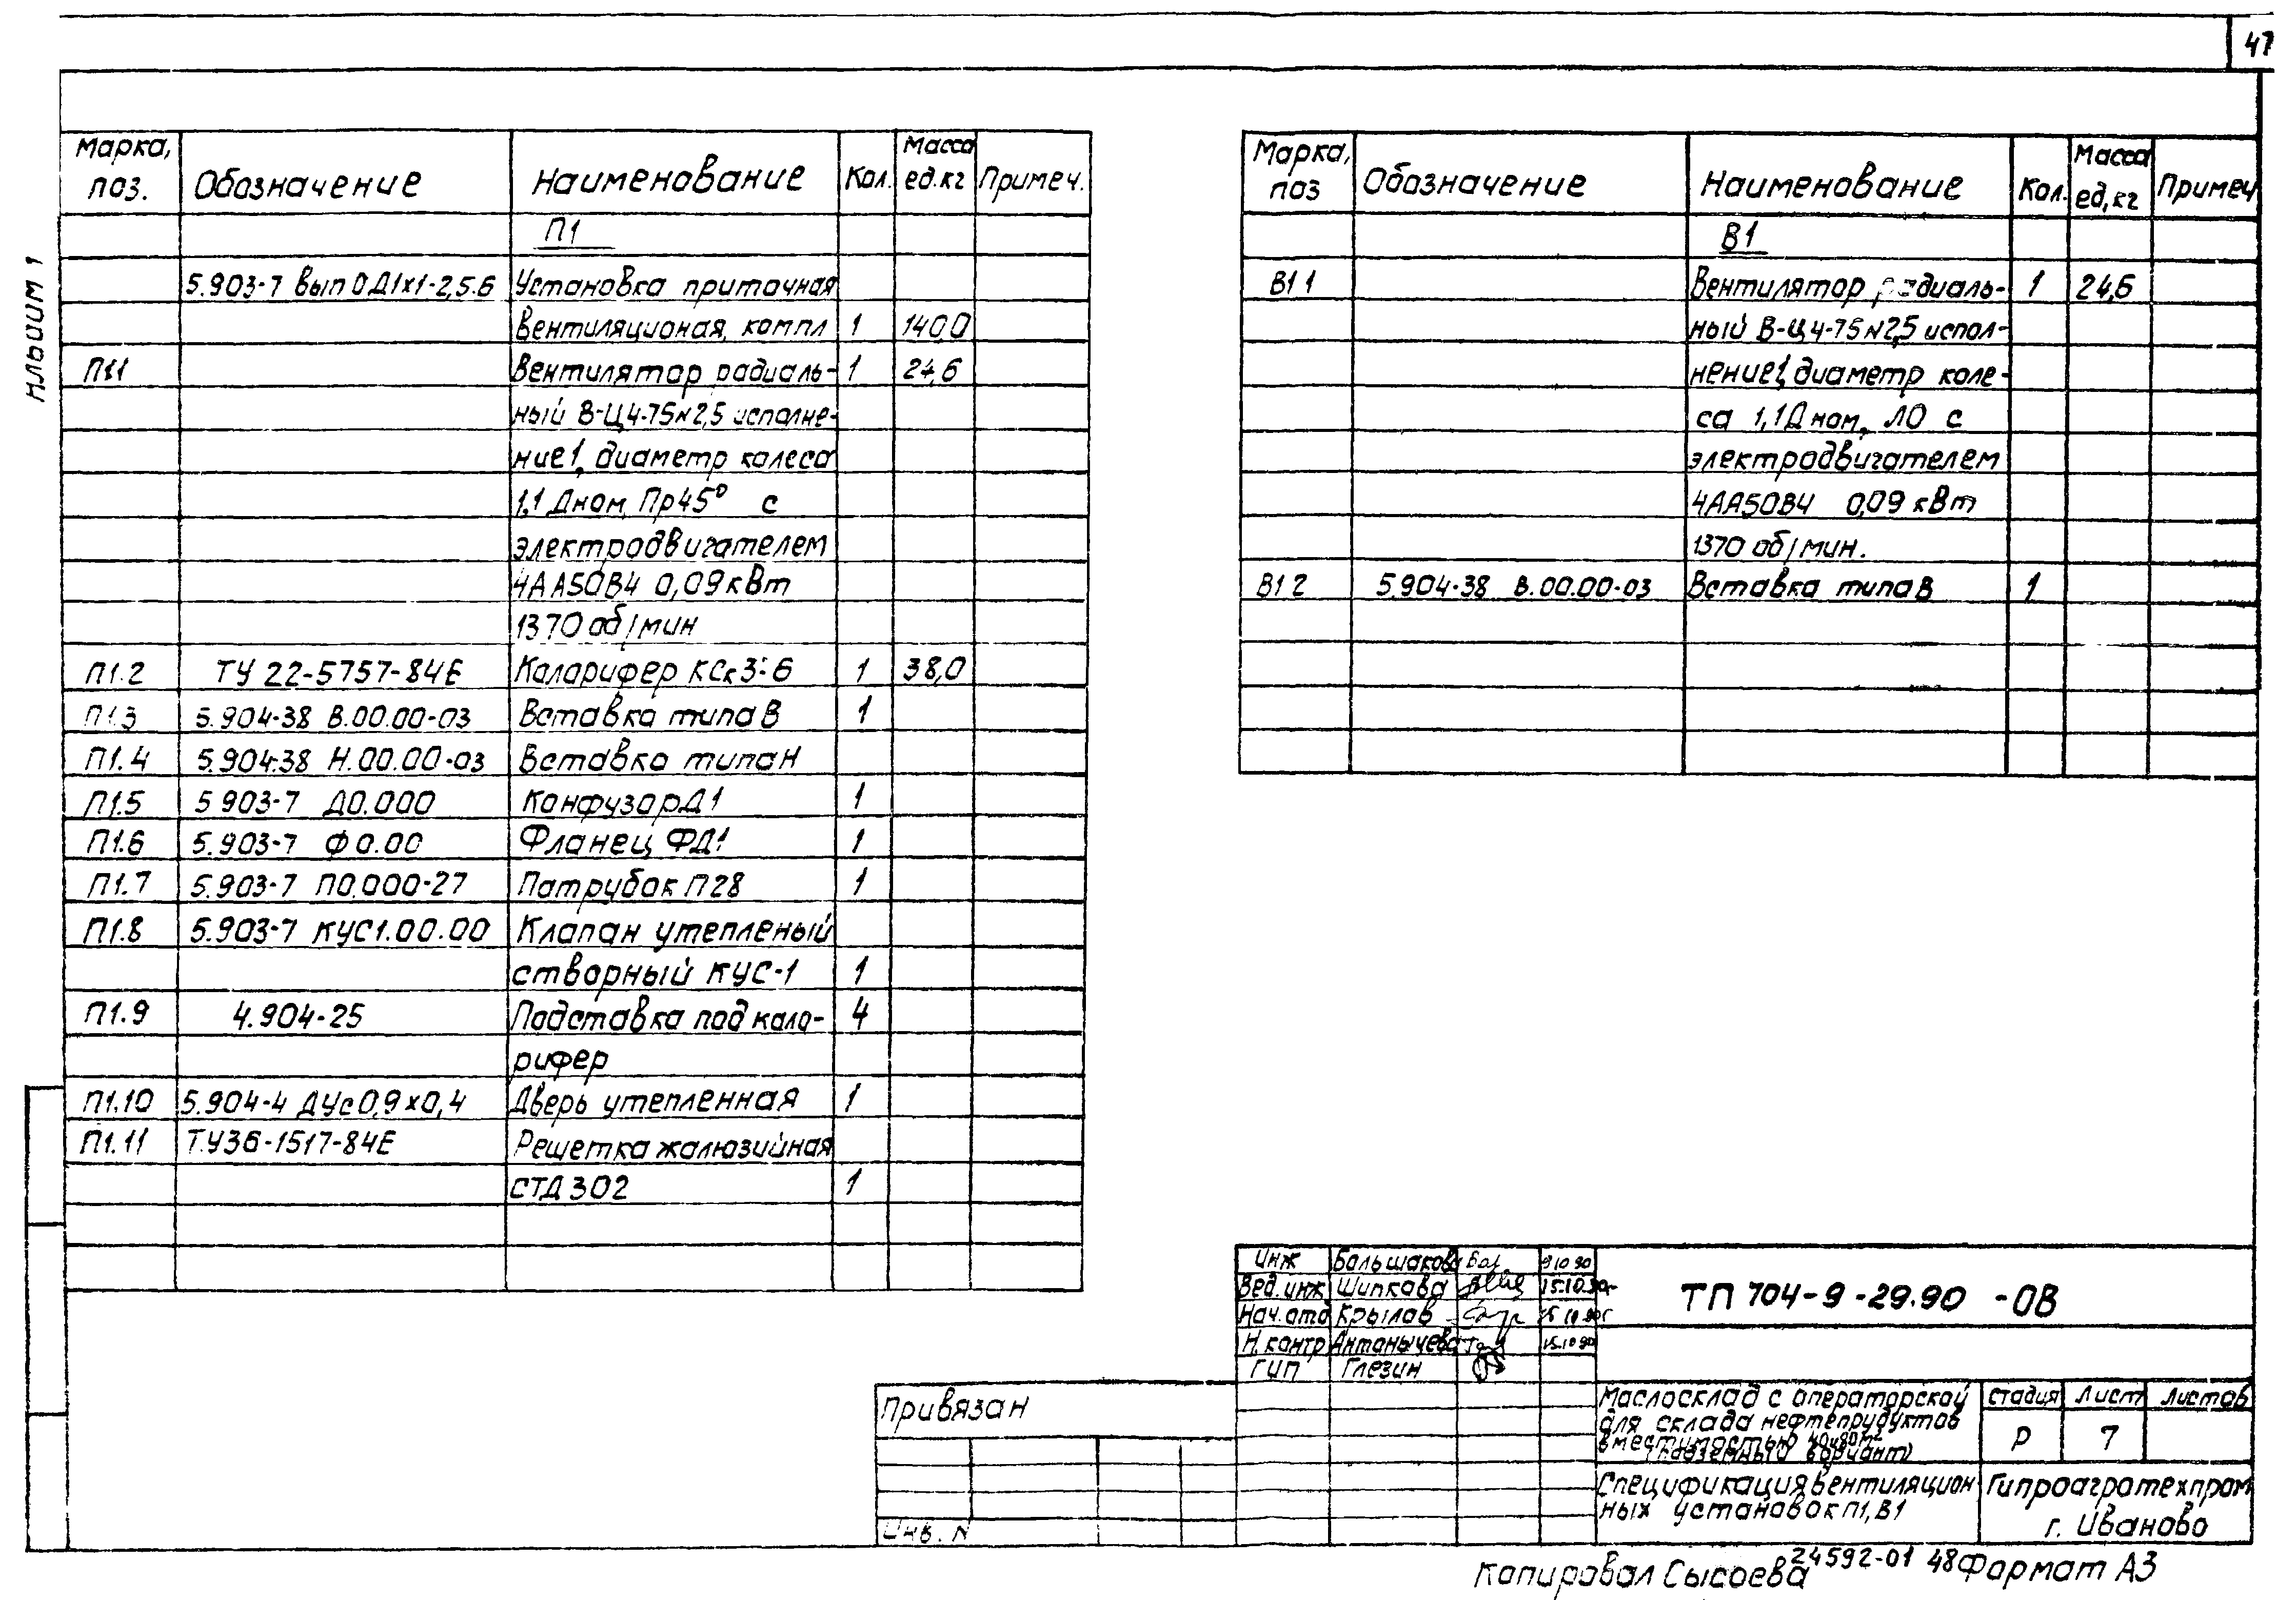 47
Альбом 1
Марка, поз. Обозначение Наименование Кол. Масса ед.кг Примеч.
П1
5.903-7 вып 0 Д1х1-2,5.6 Установка приточная
вентиляционая, компл 1 140,0
П1.1 Вентилятор радиаль- 1 24,6
ный В-Ц4-75№2,5 исполне-
ние1, диаметр колеса
1,1 Дном, Пр45° с
электродвигателем
4АА50В4 0,09 кВт
1370 об/мин
П1.2 ТУ 22-5757-84Е Калорифер КСк3-6 1 38,0
П1.3 5.904-38 В.00.00-03 Вставка типа В 1
П1.4 5.904-38 Н.00.00-03 Вставка типа Н
П1.5 5.903-7 Д0.000 Конфузор Д1 1
П1.6 5.903-7 Ф0.00 Фланец ФД1 1
П1.7 5.903-7 П0.000-27 Патрубок П28 1
П1.8 5.903-7 КУС1.00.00 Клапан утепленый
створный КУС-1 1
П1.9 4.904-25 Подставка под кало- 4
рифер
П1.10 5.904-4 ДУс0,9х0,4 Дверь утепленная 1
П1.11 ТУ36-1517-84Е Решетка жалюзийная
СТД 302 1
Марка, поз Обозначение Наименование Кол. Масса ед,кг Примеч
В1
В1 1 Вентилятор радиаль- 1 24,6
ный В-Ц4-75№2,5 испол-
нение1, диаметр коле-
са 1,1Дном, Л0 с
электродвигателем
4АА50В4 0,09 кВт
1370 об/мин.
В1 2 5.904-38 В.00.00-03 Вставка типа В 1
Инж Большакова 9 10 90
Вед.инж Шипкова 15.10.90г
Нач.отд Крылов 15 10 90г
Н.контр Антонычева 15.10 90
ГИП Глезин
ТП 704-9-29.90 -ОВ
Маслосклад с операторской
для склада нефтепродуктов
вместимостью
(надземный вариант)
стадия лист листов
Р 7
Спецификация вентиляцион
ных установок П1, В1
Гипроагротехпром
г. Иваново
Привязан
Инв. N
Копировал Сысоева 24592-01 48 Формат А3